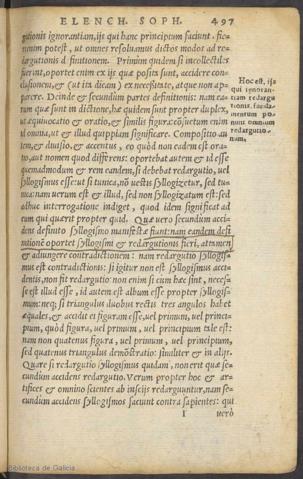 ELENCH. SOPH. 497
gutionis ignorantiam, ijs qui hanc principium faciunt. fie-
nenim potest, ut omnes resoluamus dictos modos ad re-
dargutionis d finitionem. Primùm quidem si incollectiles
fuerint, oportet enim ex ijs quæ posita sunt, accidere con-
clusionem, & (ut ita dicam) ex necessitate, atque non ap-
parere. Deinde & secundum partes definitionis: nam ea-
rum quæ sunt in dictione, hæ quidem sunt propter duplex,
ut æquiuocatio & oratio, & similis figura: cõsuetum enim
id omnia, ut & illud quippiam significare. Compositio au-
tem, & diuisio, & accentus, eo quòd non eadem est ora-
tio, aut nomen quod differens: oportebat autem & id esse
quemadmodum & rem eandem, si debebat redargutio, uel
syllogismus esse: ut si tunica, nõ uestis syllogizetur, sed tu-
nica: nam uerum est & illud, sed non syllogizatum est: sed
adhuc interrogatione indiget, quòd idem significat ad
eum qui quærit propter quid. Quæ uero secundum acci-
dens definito syllogismo manifestæ fiunt: nam eandem defi
nitionẽ oportet syllogismi & redargutionis fieri, attamen
& adiungere contradictionem: nam redargutio syllogis-
mus est contradictionis: si igitur non est syllogismus acci-
dentis, non fit redargutio: non enim si cum hæc sint, neces-
se est illud esse, id autem est album esse propter syllogis-
mum: neq; si triangulus duobus rectis tres angulos habet
æquales, & accidit ei figuram esse, uel primum, uel princi-
pium, quòd figura, uel primum, uel principium tale est:
nam non quatenus figura, uel primum, uel principium,
sed quatenus triangulus demõstratio: similiter & in alijs.
Quare si redargutio syllogismus quidam, non erit quæ se-
cundum accidens redargutio. Verum propter hoc & ar-
tifices & omnino scientes ab insciis redarguuntur, nam se-
cundum accidens syllogismos faciunt contra sapientes: qui
I uerò
Hoc est, ijs
qui ignoran-
tiam redargu
tionis, funda-
mentum po-
nunt omnium
redargutio-
num,
Biblioteca de Galicia